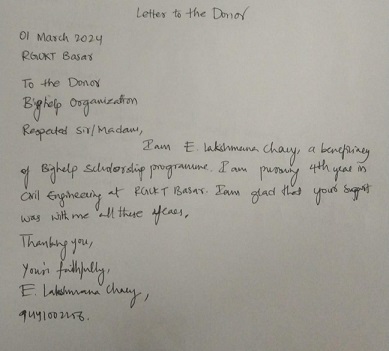 Letter to the Donor
01 March 2024
RGUKT Basar
To the Donor
Bighelp Organization
Respected Sir/Madam,
I am E. Lakshmana Chary, a beneficiary
of Bighelp Scholarship programme. I am pursuing 4th year in
Civil Engineering at RGUKT Basar. I am glad that your support
was with me all these years.
Thanking you,
Yours faithfully,
E. Lakshmana Chary,